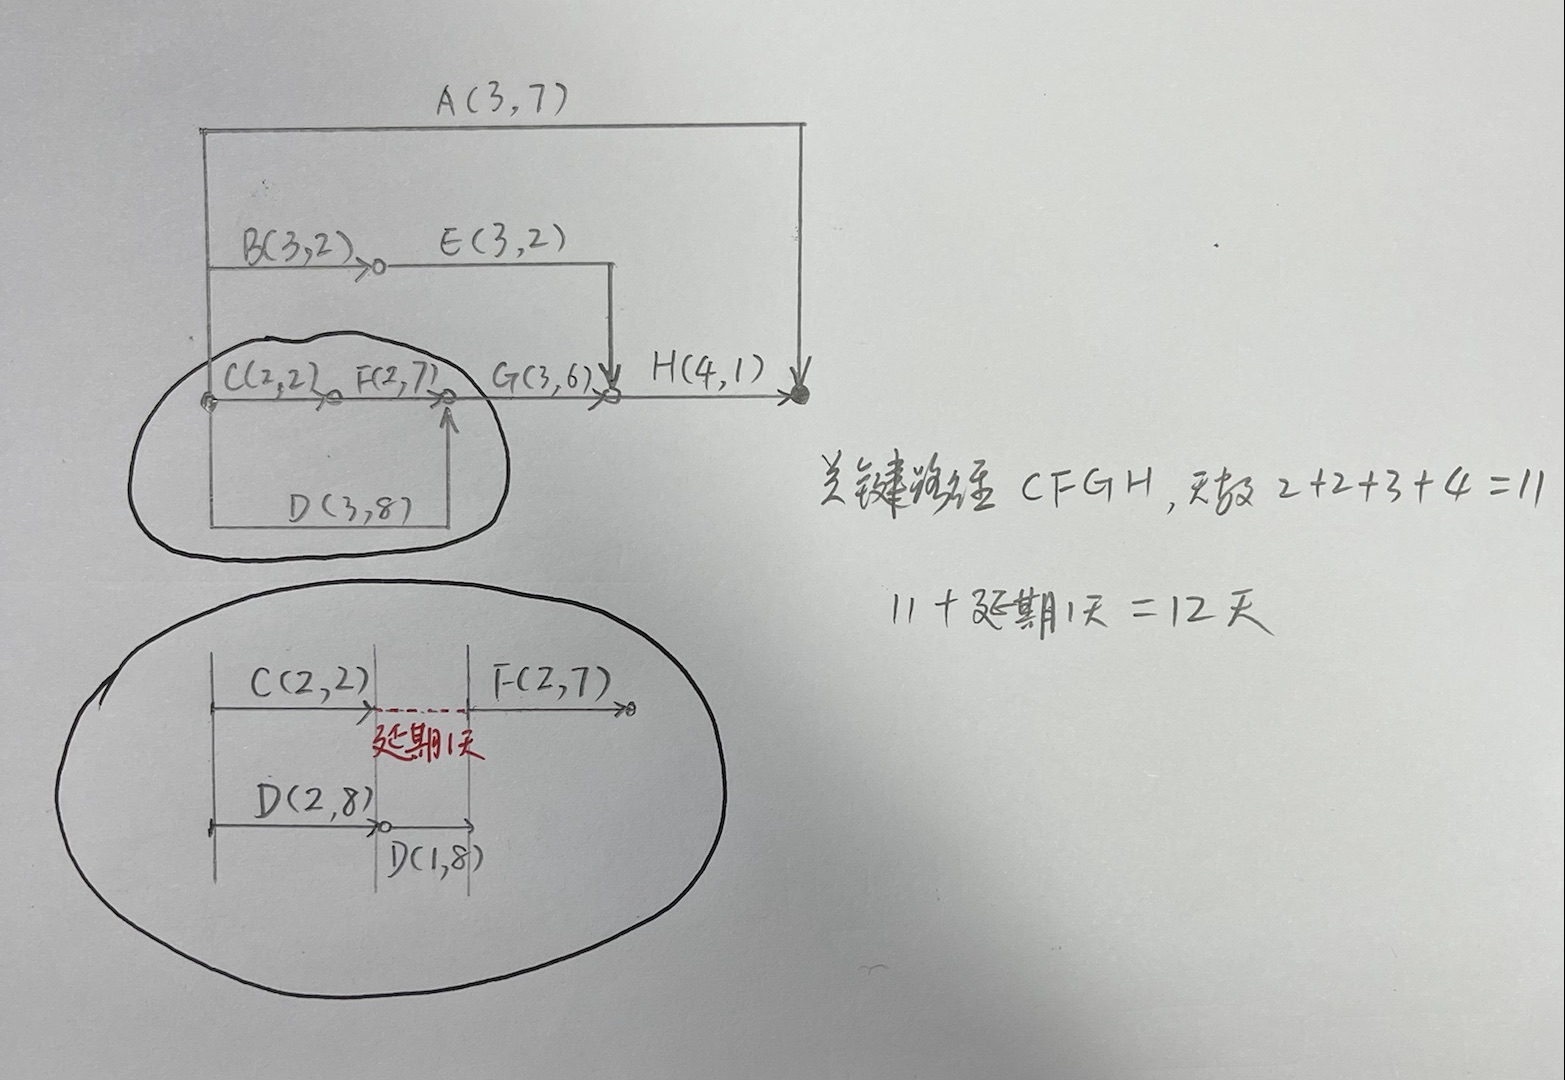 A(3,7)
B(3,2) E(3,2)
C(2,2) F(2,7) G(3,6) H(4,1)
D(3,8)
关键路径 CFGH,天数 2+2+3+4=11
11+延期1天=12天
C(2,2) F(2,7)
延期1天
D(2,8)
D(1,8)